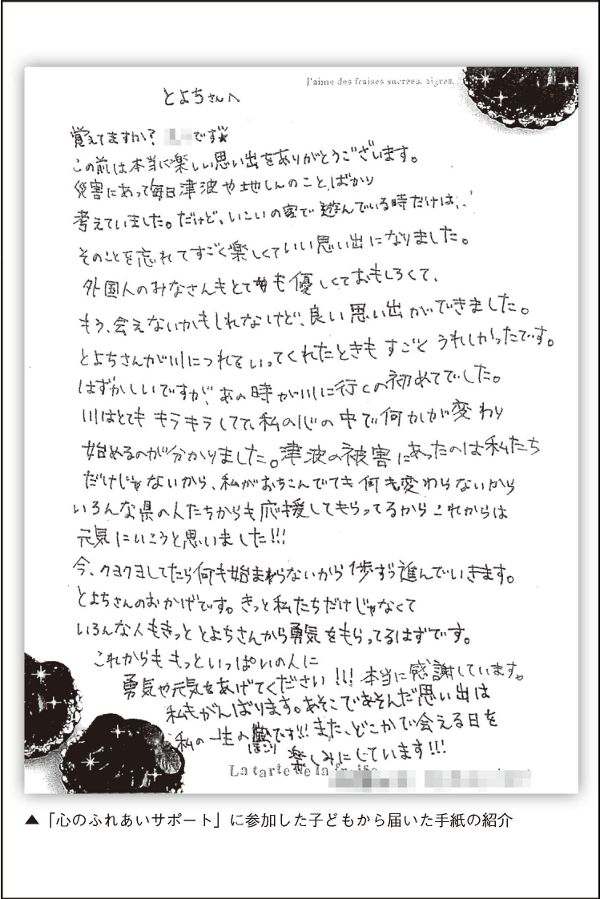 l'aime des fraises sucrées, aigres.
とよちさんへ
覚えてますか? です☆
この前は本当に楽しい思い出をありがとうございます。
災害にあって毎日津波や地しんのことばかり
考えていました。だけど、いこいの家で遊んでいる時だけは、
そのことを忘れてすごく楽しくていい思い出になりました。
外国人のみなさんもとても優しくておもしろくて、
もう、会えないかもしれないけど、良い思い出ができました。
とよちさんが川につれていってくれたときもすごくうれしかったです。
はずかしいですが、あの時が川に行くの初めてでした。
川はとてもキラキラしてて、私の心の中で何かが変わり
始めるのが分かりました。津波の被害にあったのは私たち
だけじゃないから、私がおちこんでても何も変わらないから
いろんな県の人たちからも応援してもらってるからこれからは
元気にいこうと思いました!!!
今、クヨクヨしてたら何も始まらないから1歩ずつ進んでいきます。
とよちさんのおかげです。きっと私たちだけじゃなくて
いろんな人もきっととよちさんから勇気をもらってるはずです。
これからももっといっぱいの人に
勇気や元気をあげてください!!! 本当に感謝しています。
私もがんばります。あそこであそんだ思い出は
私の一生の です!! また、どこかで会える日を
ほこり
楽しみにしています!!!
La tarte de la fraise
▲「心のふれあいサポート」に参加した子どもから届いた手紙の紹介